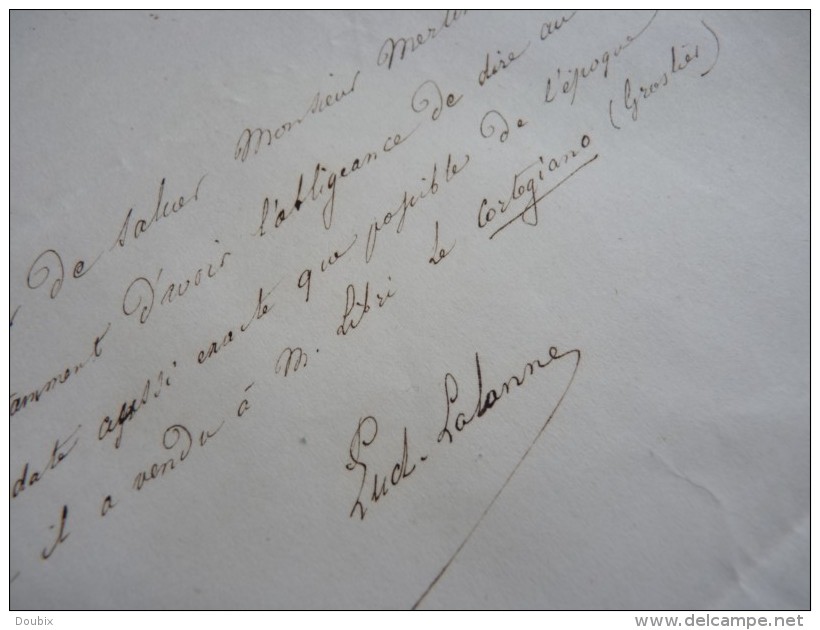 de saluer Monsieur Merlin
tamment d'avoir l'obligeance de dire au
date aussi exacte que possible de l'époque
il a vendu à M. Libri le Cortegiano (Grolier)
Lud. Lalanne
Doubix
www.delcampe.net